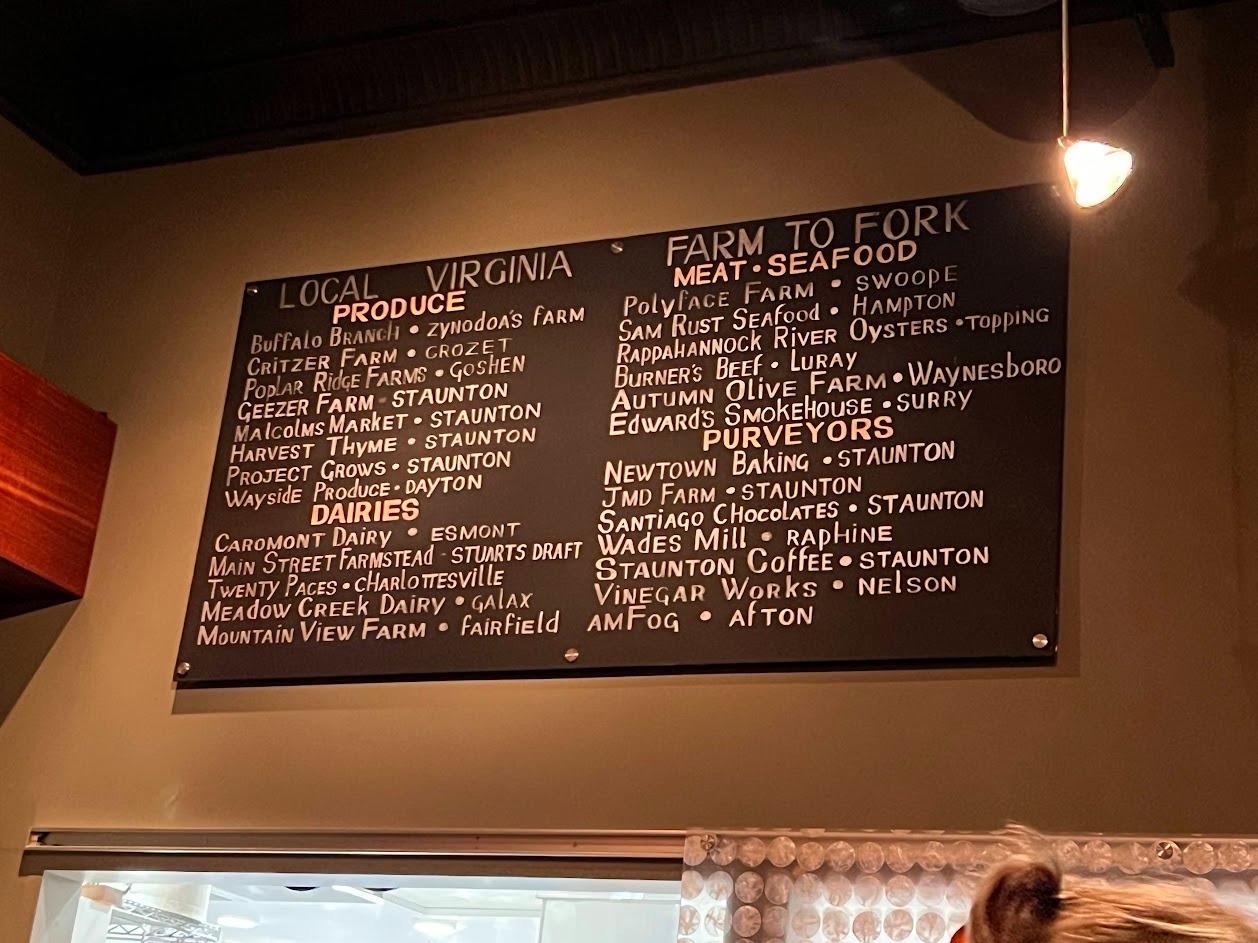 LOCAL VIRGINIA
PRODUCE
Buffalo Branch • Zynodoa's Farm
Critzer Farm • Crozet
Poplar Ridge Farms • Goshen
Geezer Farm - Staunton
Malcolms Market • Staunton
Harvest Thyme • Staunton
Project Grows • Staunton
Wayside Produce • Dayton
DAIRIES
Caromont Dairy • Esmont
Main Street Farmstead - Stuarts Draft
Twenty Paces • Charlottesville
Meadow Creek Dairy • Galax
Mountain View Farm • Fairfield
FARM TO FORK
MEAT • SEAFOOD
Polyface Farm • Swoope
Sam Rust Seafood • Hampton
Rappahannock River Oysters • Topping
Burner's Beef • Luray
Autumn Olive Farm • Waynesboro
Edward's Smokehouse • Surry
PURVEYORS
Newtown Baking • Staunton
JMD Farm • Staunton
Santiago Chocolates • Staunton
Wades Mill • Raphine
Staunton Coffee • Staunton
Vinegar Works • Nelson
amFog • Afton